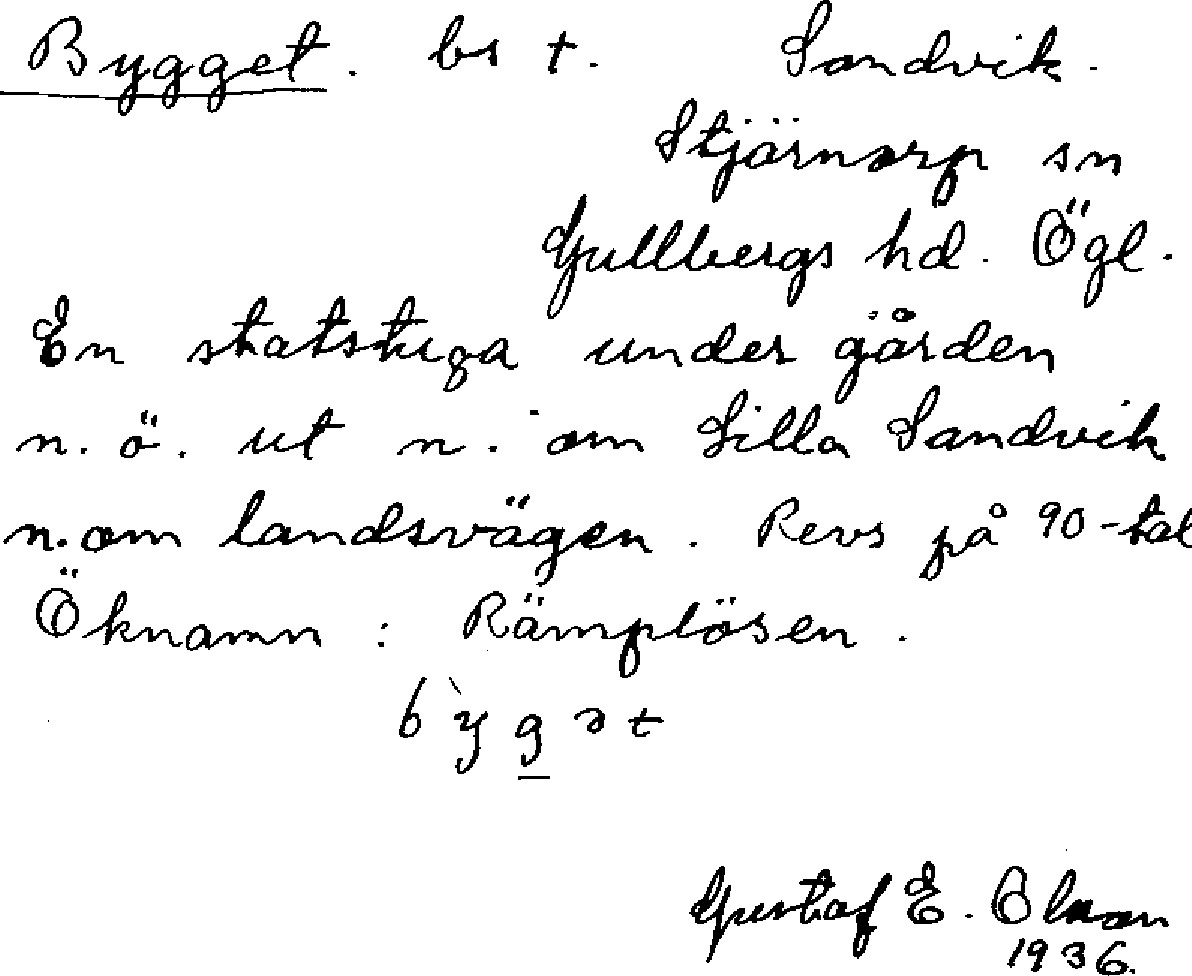 Bygget. bs †. Sandvik.
Stjärnorp sn
Gullbergs hd. Ögl.
En statstuga under gården
n. ö. ut n. om Lilla Sandvik
n. om landsvägen. Revs på 90-tal
Öknamn: Rämplösen.
b`yg̲ət
Gustaf E. Olsson
1936.